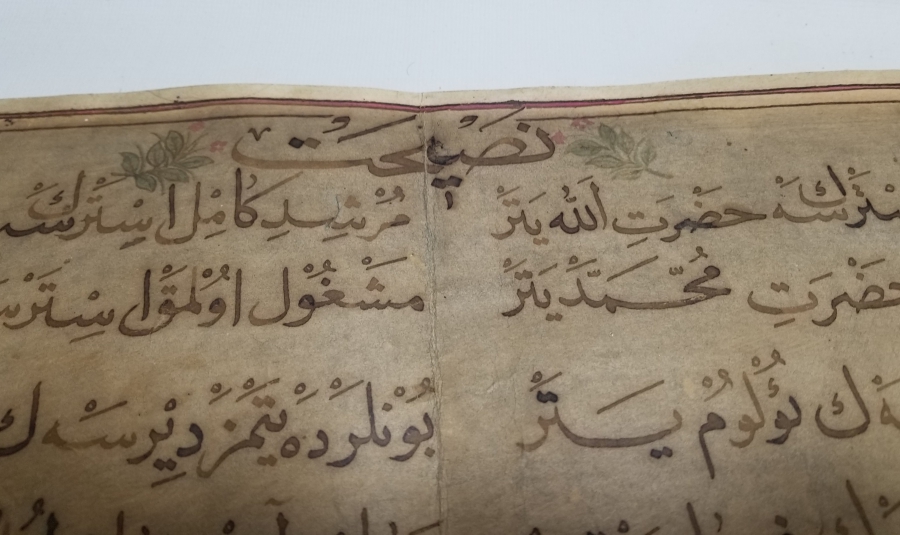 نَصِيحَتْ
سْتَرْسَهْ كْ حَضْرَتِ اَللّٰه يَتَرْ مُرْشِدِ كَامِلْ اِسِتَرْسَهْ كْ
حَضْرَتِ مُحَمَّدْ يَتَرْ مَشْغُولْ اُولْمَقْ اِسِتَرْسَ
ئُولُومْ يَتَرْ بُونْلَرْ دَهْ يَتْمَزْ دِيْرسَهْ ك